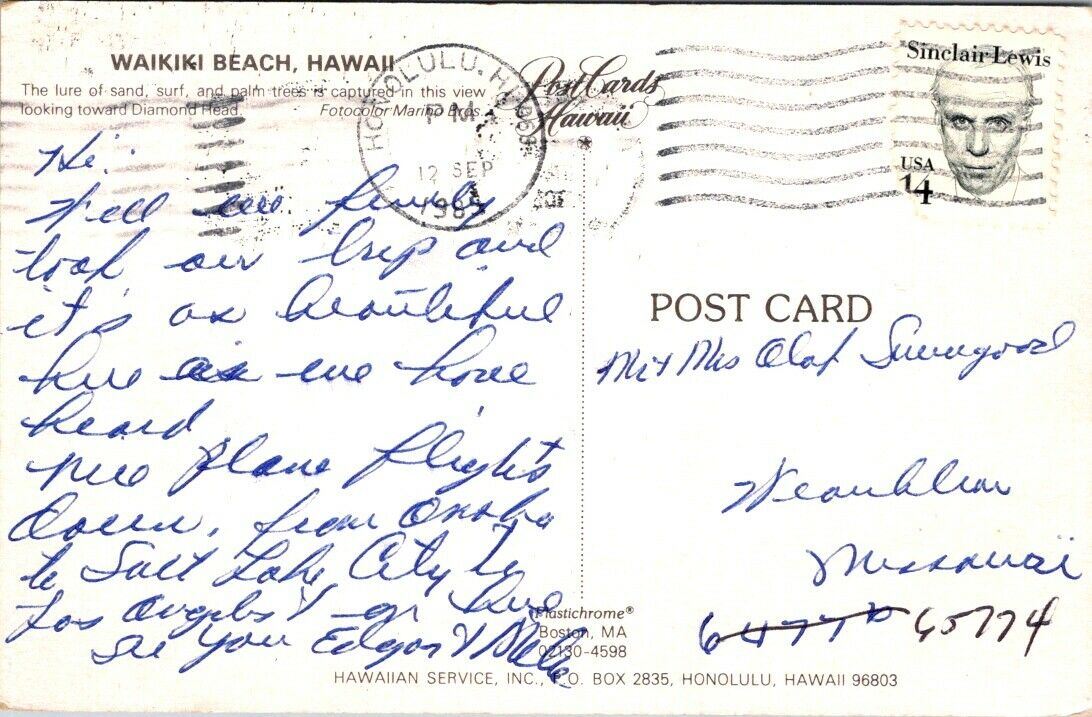 WAIKIKI BEACH, HAWAII
The lure of sand, surf, and palm trees is captured in this view
looking toward Diamond Head.
Fotocolor Marino Bros.
PostCards
Hawaii
HONOLULU, HI 968
PM
12 SEP
1985
Sinclair Lewis
USA
14
Hi.
Well we finally
took our trip and
it's as beautiful
here as we have
heard
nice plane flight
down, from Omaha
to Salt Lake City to
Los Angeles & on here
see you Edgar &
POST CARD
Mr & Mrs Olaf
Missouri
65774
Plastichrome®
Boston, MA
02130-4598
HAWAIIAN SERVICE, INC., P.O. BOX 2835, HONOLULU, HAWAII 96803